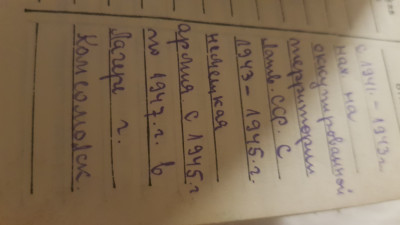 с 1941 - 1943 г.
ная на
оккупированной
территории
Латв. ССР. с
1943 - 1945. г.
немецкая
армия с 1945. г
по 1947. г. в
Лагере г.
Комсомольск.